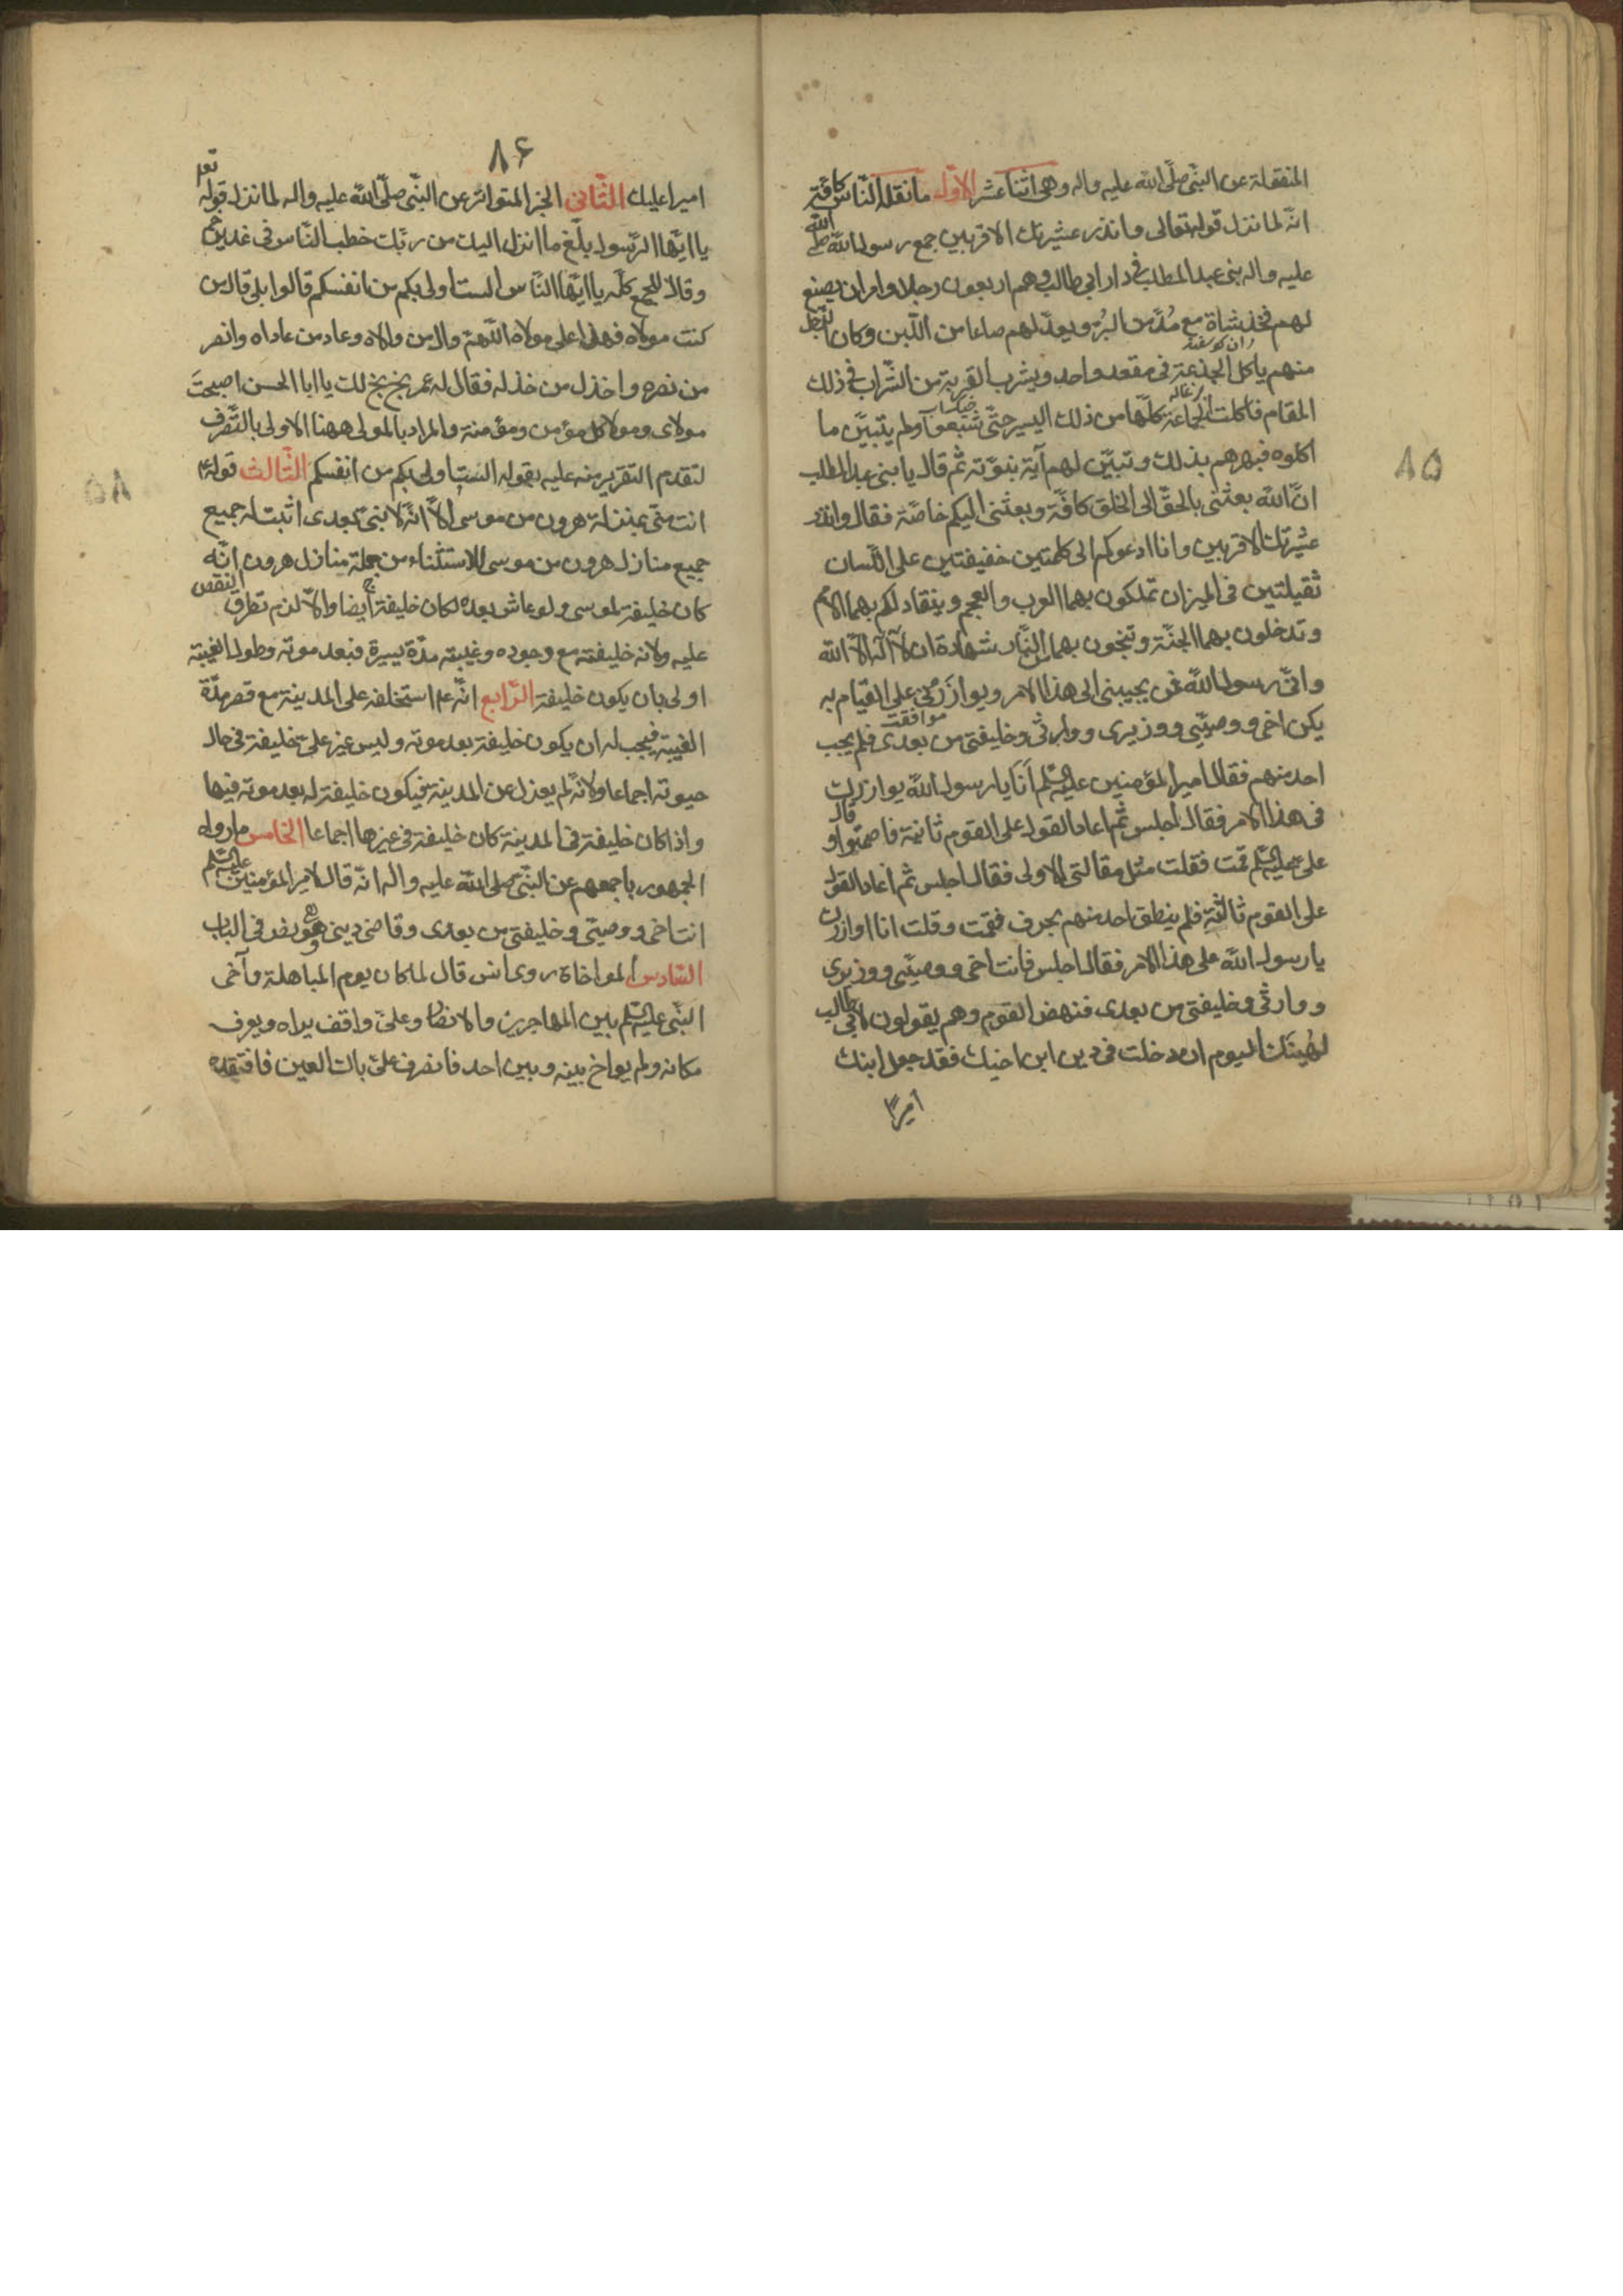 المنقولة عن النبّی صلّی اللّه علیه واله وهی اثنا عشر الاوّل ما نقله النّاس کافّة
انّه لما نزل قوله تعالی وانذر عشیرتك الاقربین جمع رسول اللّه صلی اللّه
علیه واله بنی عبد المطلب فی دار ابی طالب وهم اربعون رجلا وامر ان یصنع
لهم فخذ شاة مع مُدّ من البُرّ ویعدّ لهم صاعا من اللّبن وکان الرّجل
ران کوسفند
منهم یاکل الجذعة فی مقعد واحد ویشرب القربة من الشّراب فی ذلك
بزغاله
المقام فاکلت الجماعة کلّها من ذلك الیسیر حتّی شبعوا ولم یتبیّن ما
اکلوه فبهرهم بذلك وتبیّن لهم آیة نبوّته ثم قال یا بنی عبد المطلب
انّ اللّه بعثنی بالحقّ الی الخلق کافّة وبعثنی الیکم خاصّة فقال وانذر
عشیرتك الاقربین وانا ادعوکم الی کلمتین خفیفتین علی اللّسان
ثقیلتین فی المیزان تملکون بهما العرب والعجم وینقاد لکم بهما الامم
وتدخلون بهما الجنّة وتنجون بهما من النّار شهادة ان لا آله الاّ اللّه
وانّی رسول اللّه فمن یجیبنی الی هذا الامر ویوازرنی علی القیام به
موافقت
یکن اخی ووصیّی ووزیری ووارثی وخلیفتی من بعدی فلم یجب
احد منهم فقال امیر المؤمنین علیه السّلم أنا یا رسول اللّه یوازرك
فی هذا الامر فقال اجلس ثم اعاد القول علی القوم ثانیة فاصمتوا وقال
علیّ علیه السّلم قمت فقلت مثل مقالتی الاولی فقال اجلس ثم اعاد القول
علی القوم ثالثة فلم ینطق احد منهم بحرف فقمت وقلت انا اوازرك
یا رسول اللّه علی هذا الامر فقال اجلس فانت اخی ووصیّی ووزیری
ووارثی وخلیفتی من بعدی فنهض القوم وهم یقولون لابی طالب
لیهنئك الیوم ان دخلت فی دین ابن اخیك فقد جعل ابنك
امیرا
۸۵
۸۶
امیرا علیك الثّانی الخبر المتواتر عن النبّی صلّی اللّه علیه واله لما نزل قوله تعه
یا ایّها الرّسول بلّغ ما انزل الیك من ربّك خطب النّاس فی غدیر خم
وقال للجمع کلّه یا ایّها النّاس الست اولی بکم من انفسکم قالوا بلی قال من
کنت مولاه فهذا علی مولاه اللّهمّ وال من والاه وعاد من عاداه وانصر
من نصره واخذل من خذله فقال له عمر بخ بخ لك یا ابا الحسن اصبحتَ
مولای ومولا کل مؤمن ومؤمنة والمراد بالمولی ههنا الاولی بالتّصرف
لتقدم التقریر منه علیه بقوله الست اولی بکم من انفسکم الثّالث قوله ع
انت منّی بمنزلة هرون من موسی الاّ انّه لا نبیّ بعدی اثبت له جمیع
جمیع منازل هرون من موسی للاستثناء من جملة منازل هرون انّه
کان خلیفة لموسی ولو عاش بعده لکان خلیفة ایضا والاّ لزم تطرق النقص
علیه ولانه خلیفته مع وجوده وغیبته مدّة یسیرة فبعد موته وطول الغیبة
اولی بان یکون خلیفة الرّابع انّه ع استخلفه علی المدینة مع قصر مدّة
الغیبة فیجب له ان یکون خلیفة بعد موته ولیس غیر علیّ خلیفة فی حال
حیوته اجماعا ولانّه لم یعزل عن المدینة فیکون خلیفة له بعد موته فیها
واذا کان خلیفة فی المدینة کان خلیفة فی غیرها اجماعا الخامس ما رواه
الجمهور باجمعهم عن النبّی صلی اللّه علیه واله انّه قال لامیر المؤمنین علیه السّلم
انت اخی ووصیّی وخلیفتی من بعدی وقاضی دینی وهو نص فی الباب
السّادس المواخاة روی انس قال لما کان یوم المباهلة وآخی
النبّی علیه السّلم بین المهاجرین والانصار وعلیّ واقف یراه ویعرف
مکانه ولم یواخ بینه وبین احد فانصرف علیّ باك العین فافتقده